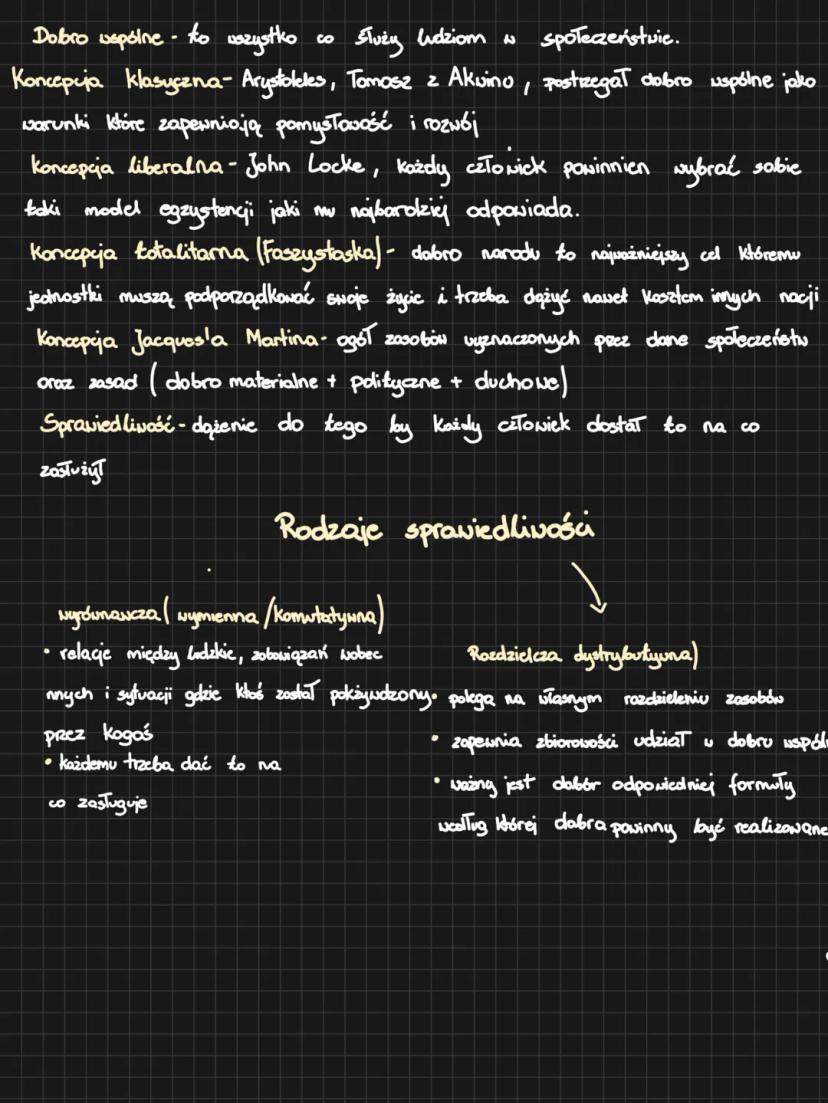 Dobro wspólne - to wszystko co służy ludziom w społeczeństwie.
Koncepcja klasyczna - Arystoteles, Tomasz z Akwinu, postrzegał dobro wspólne jako
warunki które zapewniają pomysłowość i rozwój
Koncepcja liberalna - John Locke, każdy człowiek powinnien wybrać sobie
taki model egzystencji jaki mu najbardziej odpowiada.
Koncepcja totalitarna (Faszystoska) - dobro narodu to najważniejszy cel któremu
jednostki muszą podporządkować swoje życie i trzeba dążyć nawet kosztem innych nacji
Koncepcja Jacques'a Martina - ogół zasobów wyznaczonych przez dane społeczeństw
oraz zasad (dobro materialne + polityczne + duchowe)
Sprawiedliwość - dążenie do tego by każdy człowiek dostał to na co
zasłużył
Rodzaje sprawiedliwości
wyrównawcza (wymienna/komutatywna)
• relacje między ludzkie, zobowiązań wobec
nnych i sytuacji gdzie ktoś został pokżywdzony
przez kogoś
• każdemu trzeba dać to na
co zasługuje
Rozdzielcza dystrybutywna)
• polega na własnym rozdzieleniu zasobów
• zapewnia zbiorowości udział w dobru wspóln
• ważny jest dobór odpowiedniej formuły
według której dobra powinny być realizowane